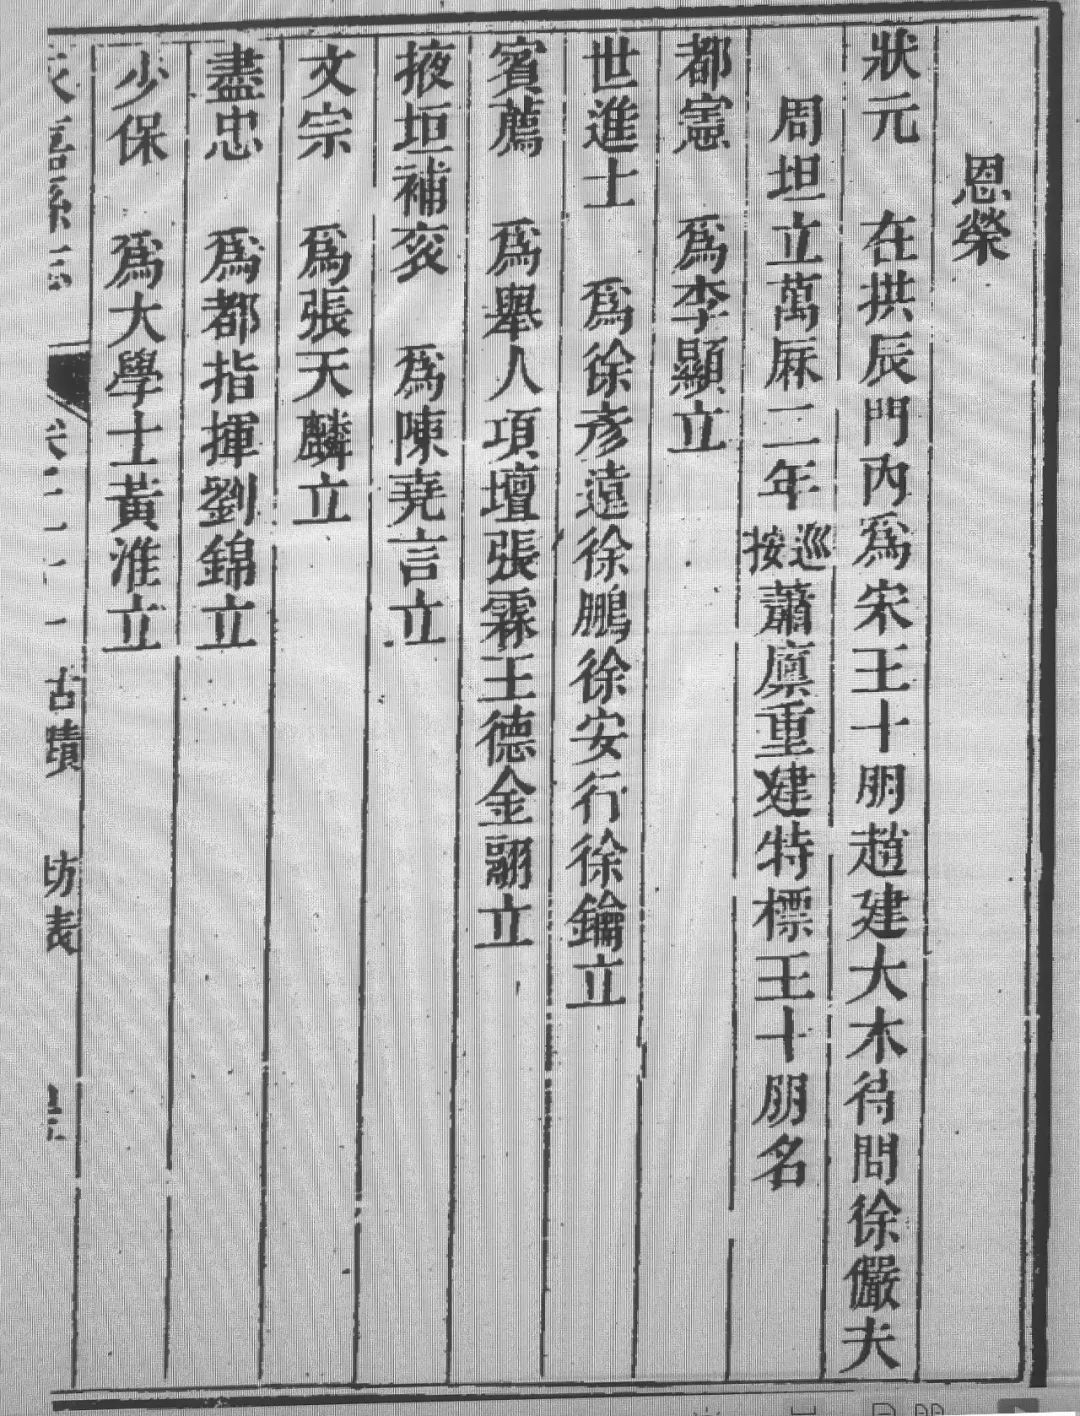 恩榮
狀元　在拱辰門內爲宋王十朋趙建大木待問徐儼夫
周坦立萬厤二年巡按蕭廩重建特標王十朋名
都憲　爲李顯立
世進士　爲徐彥遠徐鵬徐安行徐鑰立
賓薦　爲舉人項壇張霖王德金翮立
掖垣補袞　爲陳堯言立
文宗　爲張天麟立
盡忠　爲都指揮劉錦立
少保　爲大學士黃淮立
古蹟　坊表